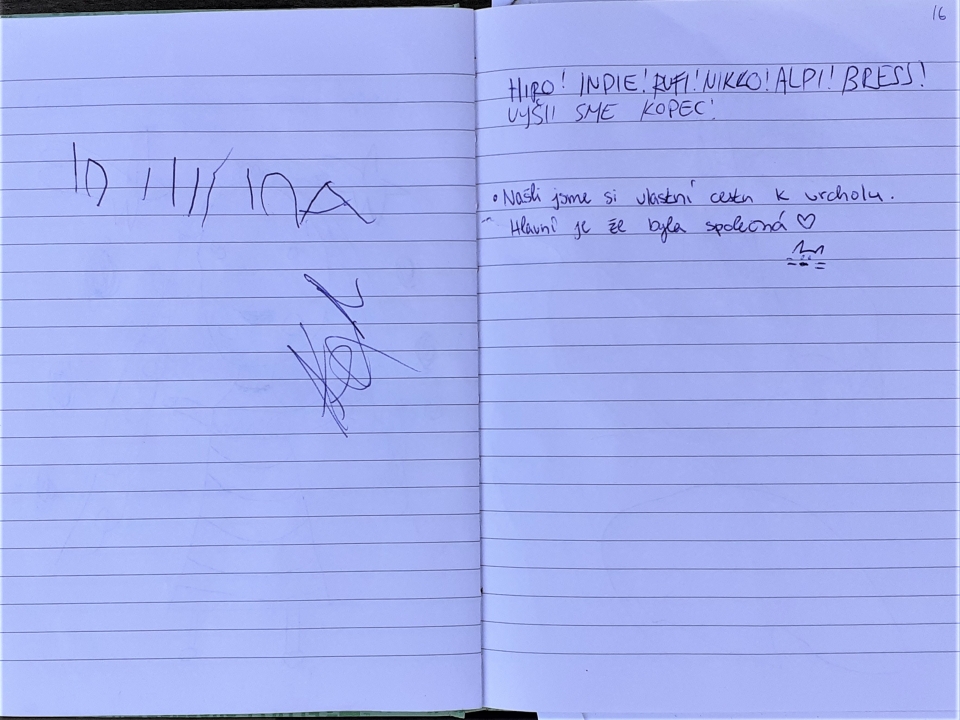 16
HIRO! INDIE! RUFI! NIKKO! ALPI! BRESS!
VYŠLI SME KOPEC!
• Našli jsme si vlastní cestu k vrcholu.
Hlavní je že byla společná ♡